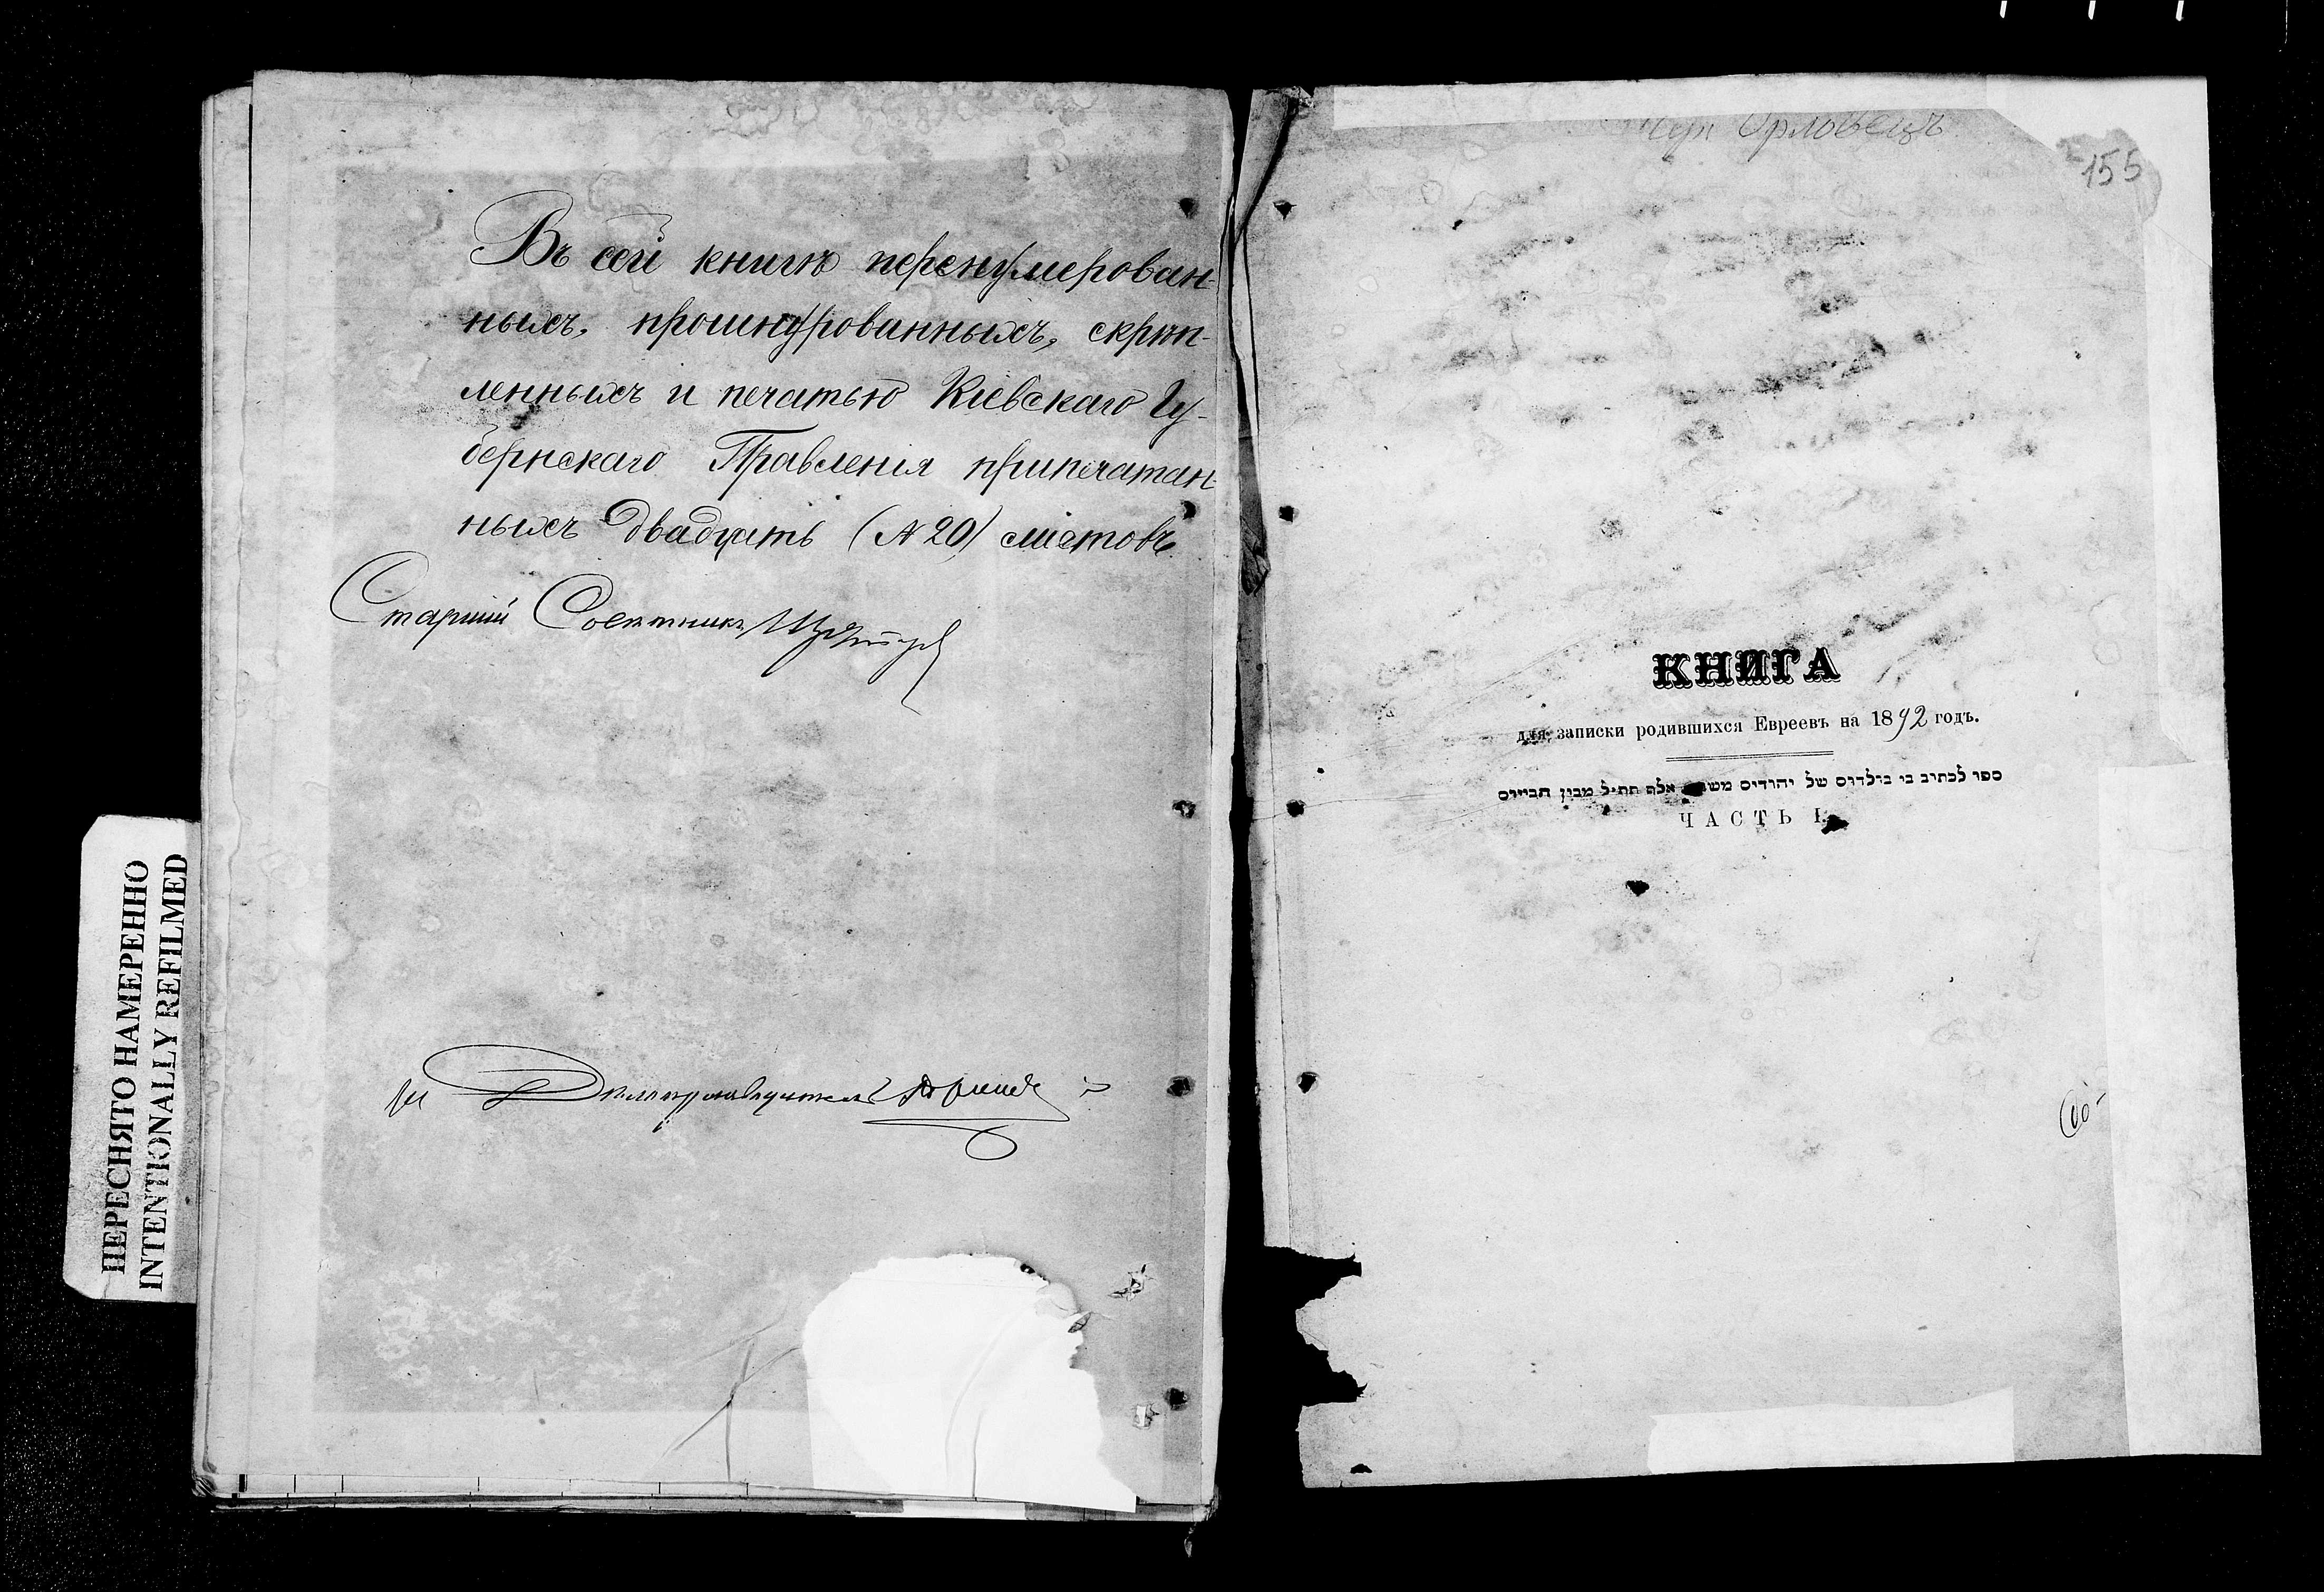 Въ сей книгѣ перенумерован-
ныхъ, прошнурованныхъ, скрѣп-
ленныхъ и печатью Кіевскаго Гу-
бернскаго Правленія припечатан-
ныхъ двадцать (№ 20) листовъ
Старшій Совѣтникъ
Дѣлопроизводитель
ПЕРЕСНЯТО НАМЕРЕННО
INTENTIONALLY REFILMED
Орловецъ
155
КНИГА
для записки родившихся Евреевъ на 1892 годъ.
ספר לכתוב בו בולדים של יהודים אלף תת״ל מבין חביריים
ЧАСТЬ I.